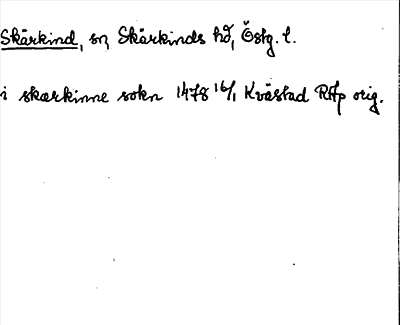 Skärkind, sn, Skärkinds hd, Östg. l.
i skærkinne sokn 1478 16/1 Kvästad RAp orig.